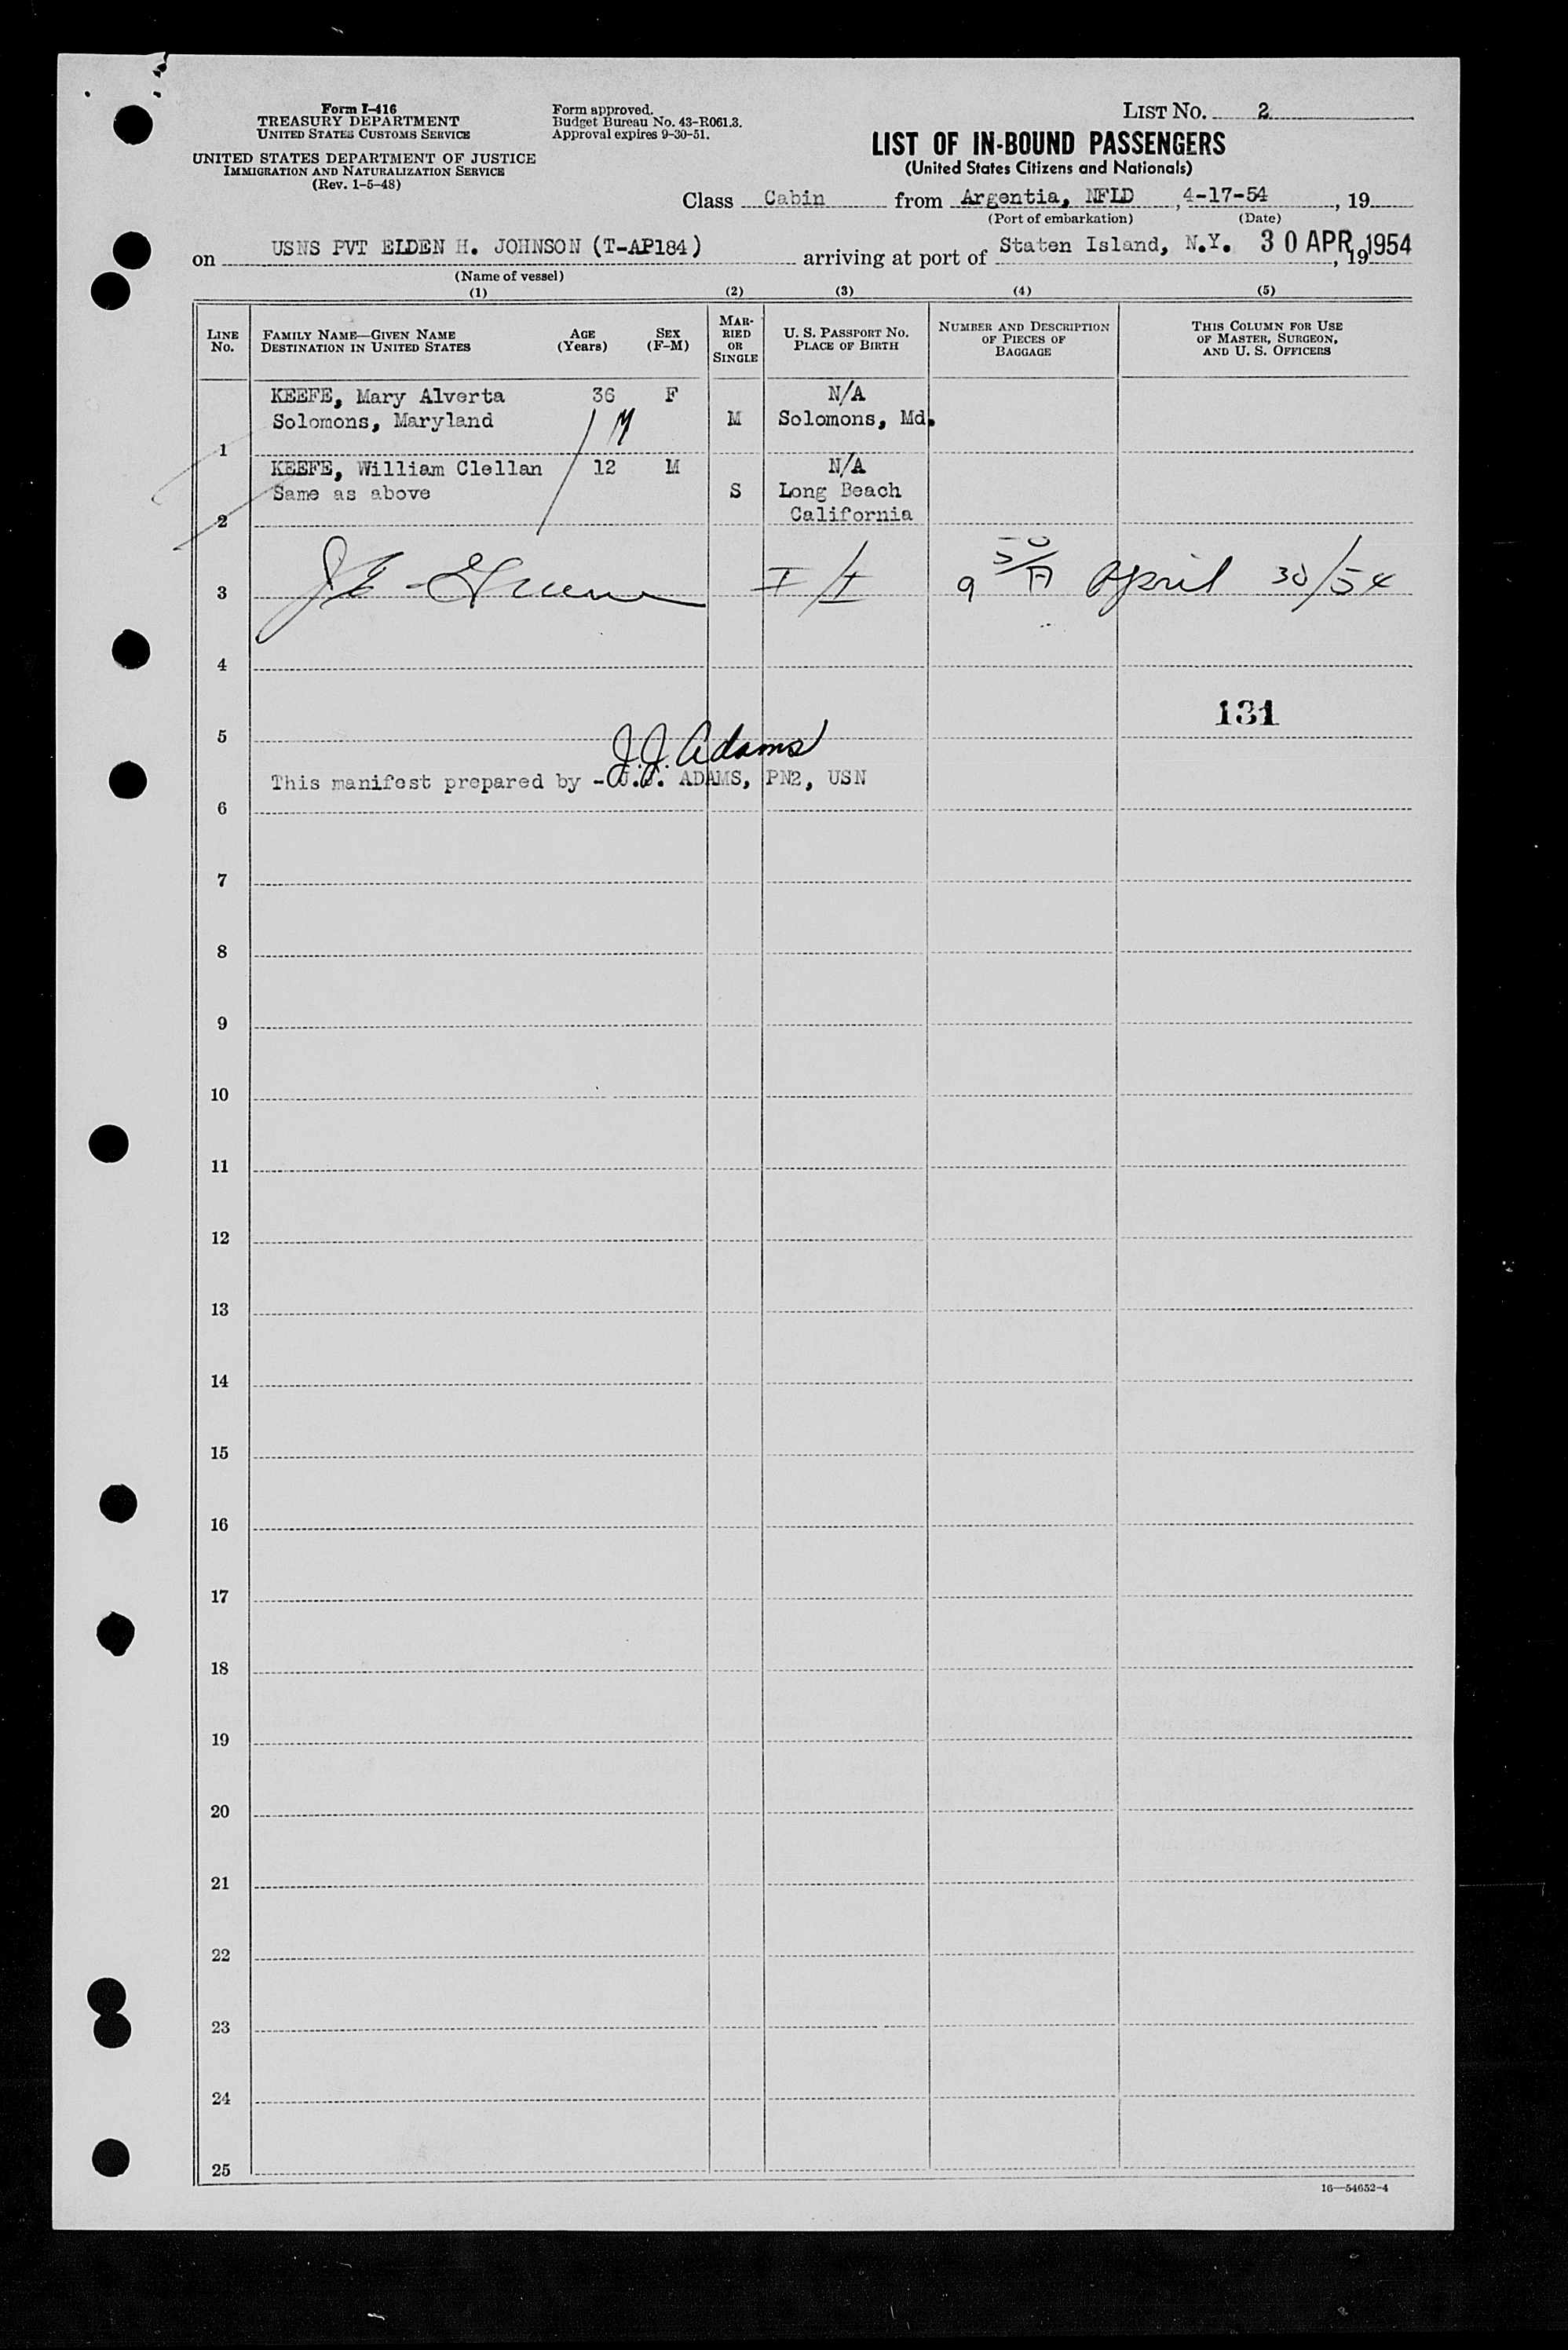 Form I-416
TREASURY DEPARTMENT
UNITED STATES CUSTOMS SERVICE
UNITED STATES DEPARTMENT OF JUSTICE
IMMIGRATION AND NATURALIZATION SERVICE
(Rev. 1-5-48)
Form approved.
Budget Bureau No. 43-R061.3.
Approval expires 9-30-51.
LIST NO. 2
LIST OF IN-BOUND PASSENGERS
(United States Citizens and Nationals)
Class Cabin from Argentia, NFLD, 4-17-54, 19
(Port of embarkation) (Date)
on USNS PVT ELDEN H. JOHNSON (T-AP184) arriving at port of Staten Island, N.Y. 30 APR 1954, 19
(Name of vessel)
(1) (2) (3) (4) (5)
LINE NO.
FAMILY NAME—GIVEN NAME
DESTINATION IN UNITED STATES
AGE (Years)
SEX (F-M)
MARRIED OR SINGLE
U. S. PASSPORT NO.
PLACE OF BIRTH
NUMBER AND DESCRIPTION OF PIECES OF BAGGAGE
THIS COLUMN FOR USE OF MASTER, SURGEON, AND U. S. OFFICERS
KEEFE, Mary Alverta 36 F N/A
Solomons, Maryland M M Solomons, Md.
1
KEEFE, William Clellan 12 M N/A
Same as above S Long Beach
California
2
3 9 50/A April 30/54
4
131
5
J.J. Adams
This manifest prepared by - J.J. ADAMS, PN2, USN
6
7
8
9
10
11
12
13
14
15
16
17
18
19
20
21
22
23
24
25
16—54652-4